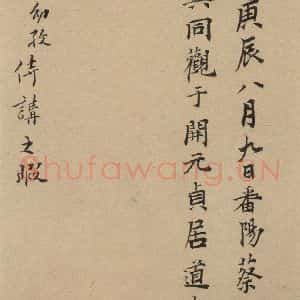 庚辰八月九日番陽蔡
同觀于開元貞居道
幼侍講之暇
Shufawang.CN